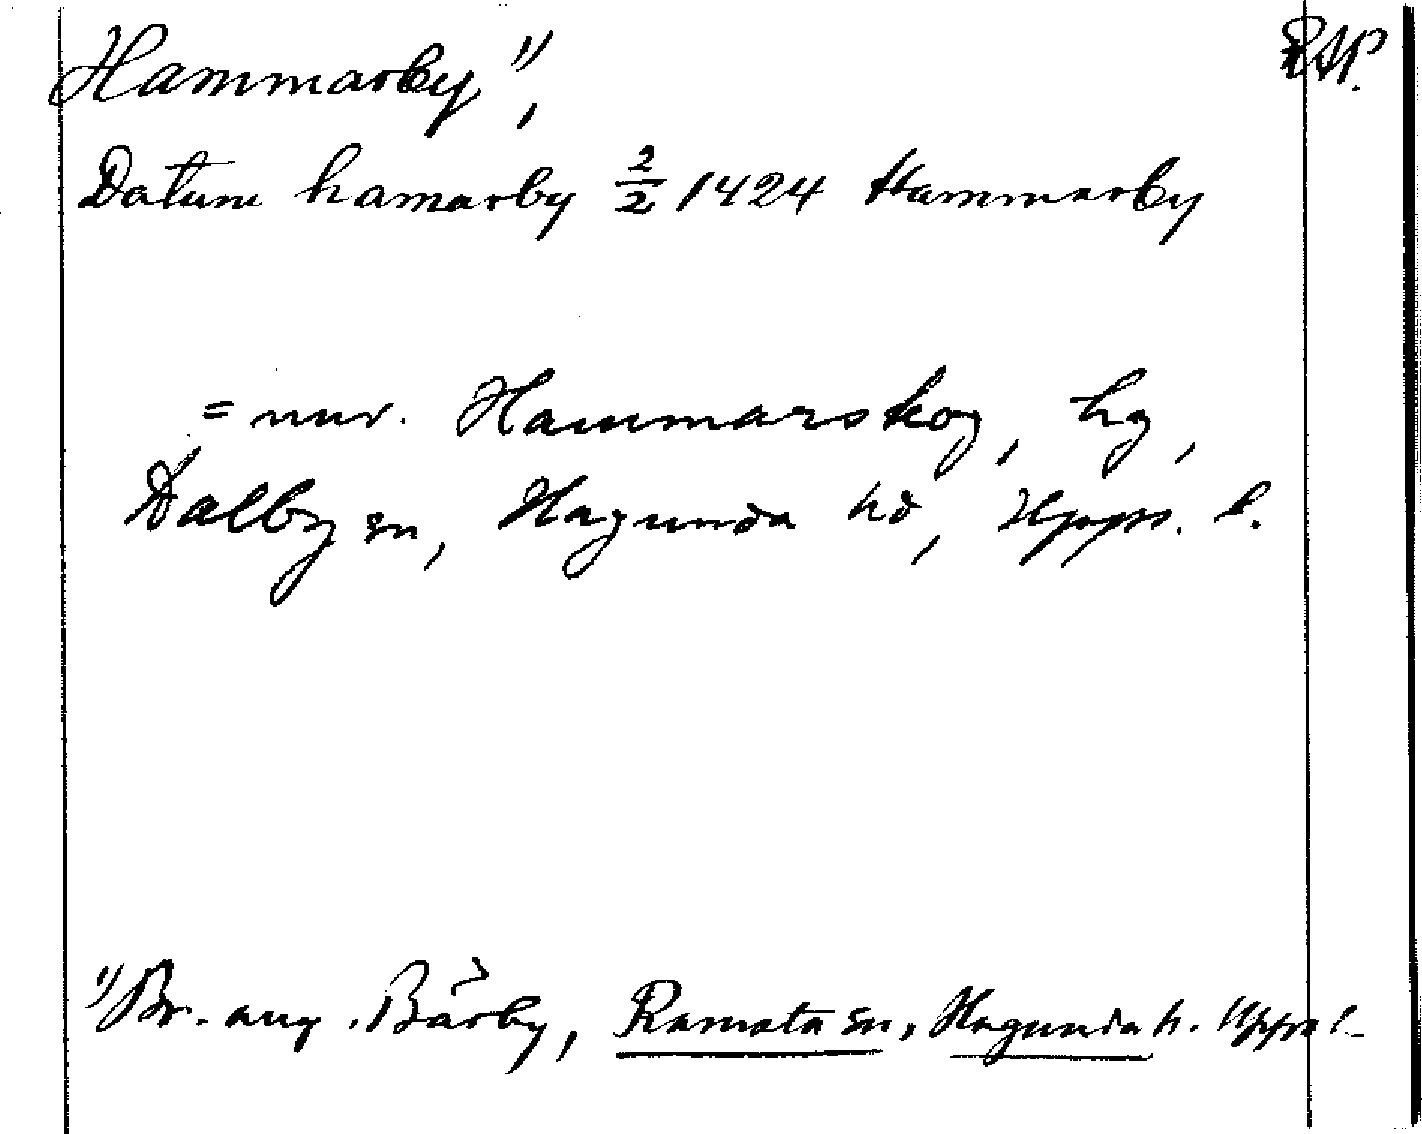 Hammarby ¹⁾, RAP.
Datum hamarby 2/2 1424 Hammarby
= nuv. Hammarskog, hg,
Dalby sn, Hagunda hd, Upps. l.
¹⁾ Br. ang. Bärby, Ramsta sn, Hagunda h. Upps l.